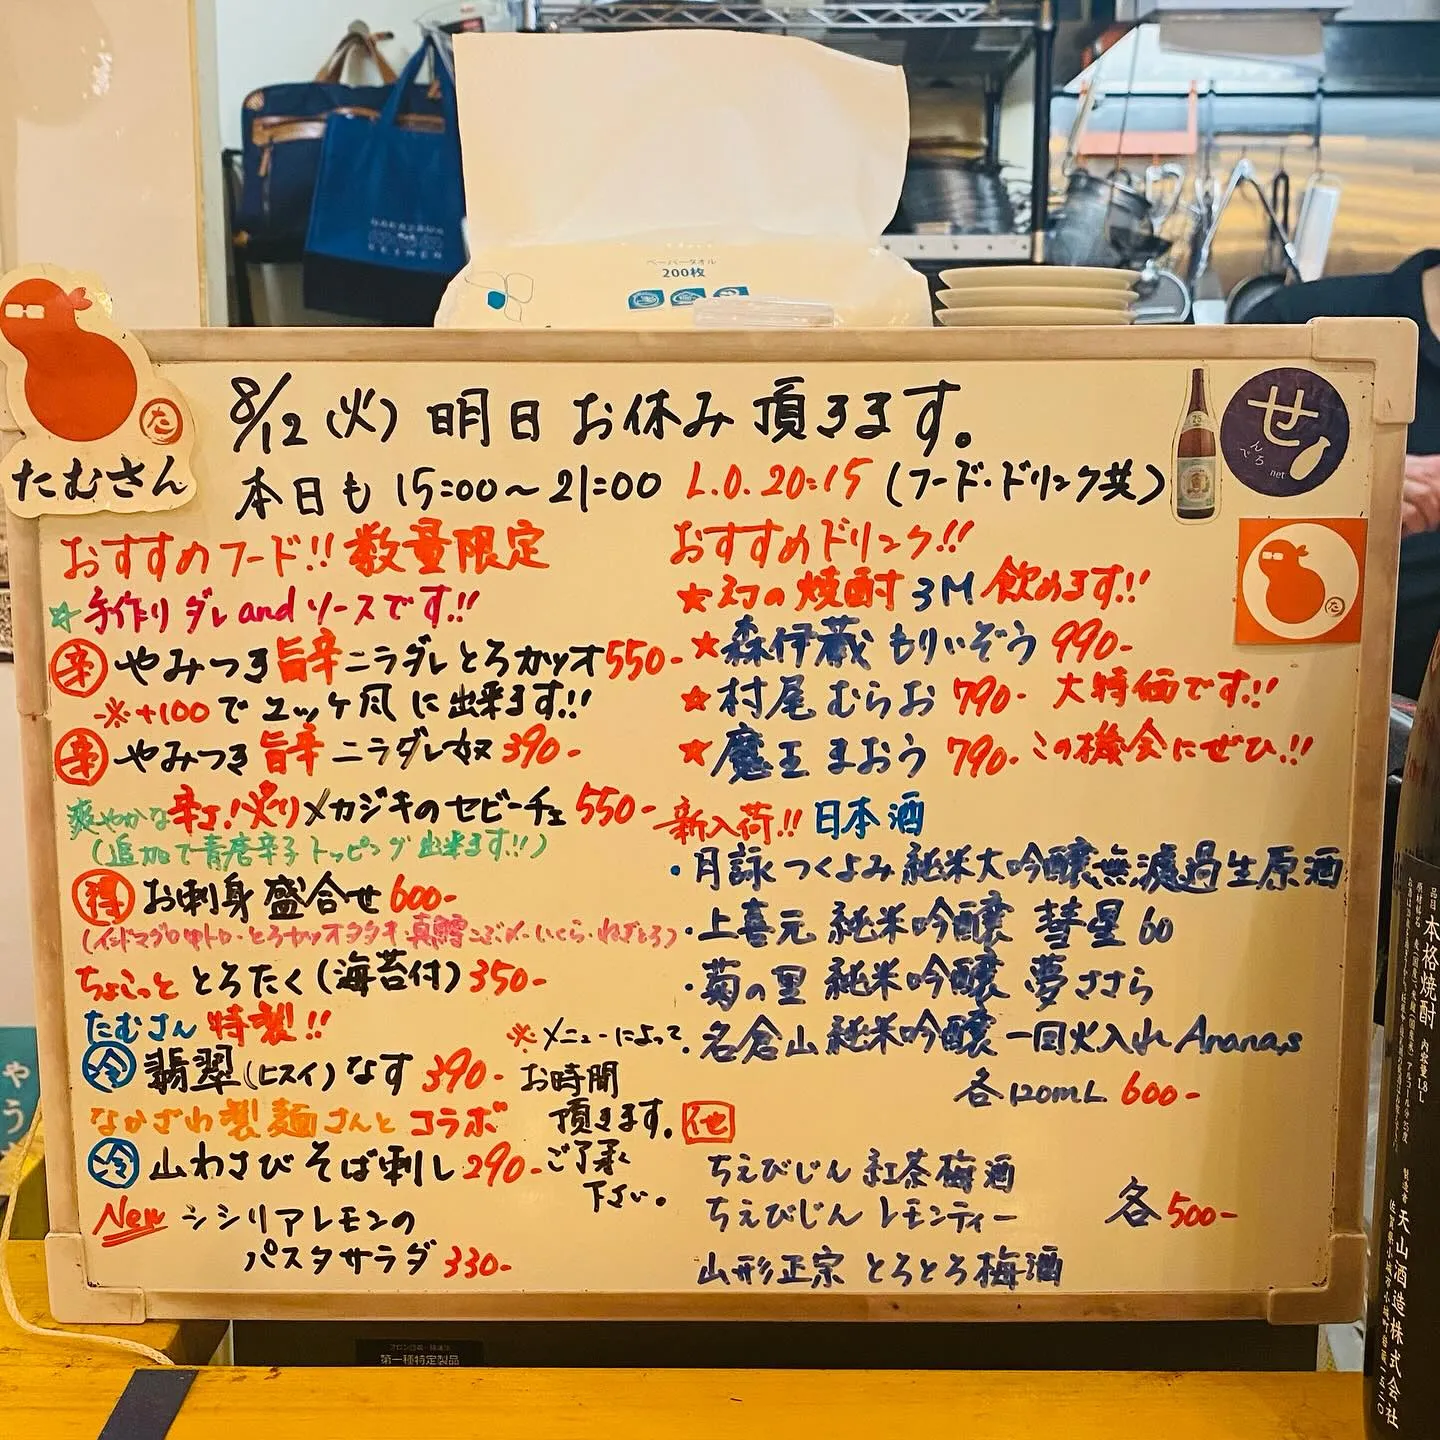 ペーパータオル
200枚
たむさん
た
8/12(火) 明日お休み頂きます。
本日も 15:00〜21:00 L.O. 20:15 (フード・ドリンク共)
せ
んでろ
net
おすすめフード!! 数量限定
☆手作りダレandソースです!!
辛 やみつき旨辛ニラダレとろカツオ 550-
-※+100でユッケ風に出来ます!!
辛 やみつき旨辛ニラダレ奴 390-
爽やかな辛さ!炙りメカジキのセビーチェ 550-
(追加で青唐辛子トッピング出来ます!!)
得 お刺身盛合せ 600-
ちょこっととろたく(海苔付) 350-
たむさん特製!!
冷 翡翠(ヒスイ)なす 390-
なかざわ製麺さんとコラボ
冷 山わさびそば刺し 290-
New シシリアレモンの
パスタサラダ 330-
※メニューによって、
お時間
頂きます。
ご了承
下さい。
おすすめドリンク!!
★幻の焼酎 3M 飲めます!!
★森伊蔵 もりいぞう 990-
★村尾 むらお 790- 大特価です!!
★魔王 まおう 790- この機会にぜひ!!
新入荷!! 日本酒
・月詠 つくよみ 純米大吟醸無濾過生原酒
・上喜元 純米吟醸 彗星60
・菊の里 純米吟醸 夢ささら
・名倉山 純米吟醸 一回火入れ Ananas
各120mL 600-
他
ちえびじん 紅茶梅酒
ちえびじん レモンティー
山形正宗 とろとろ梅酒
各500-
第一種特定製品
品目 本格焼酎 内容量1.8L
製造者 天山酒造株式会社
ゃう